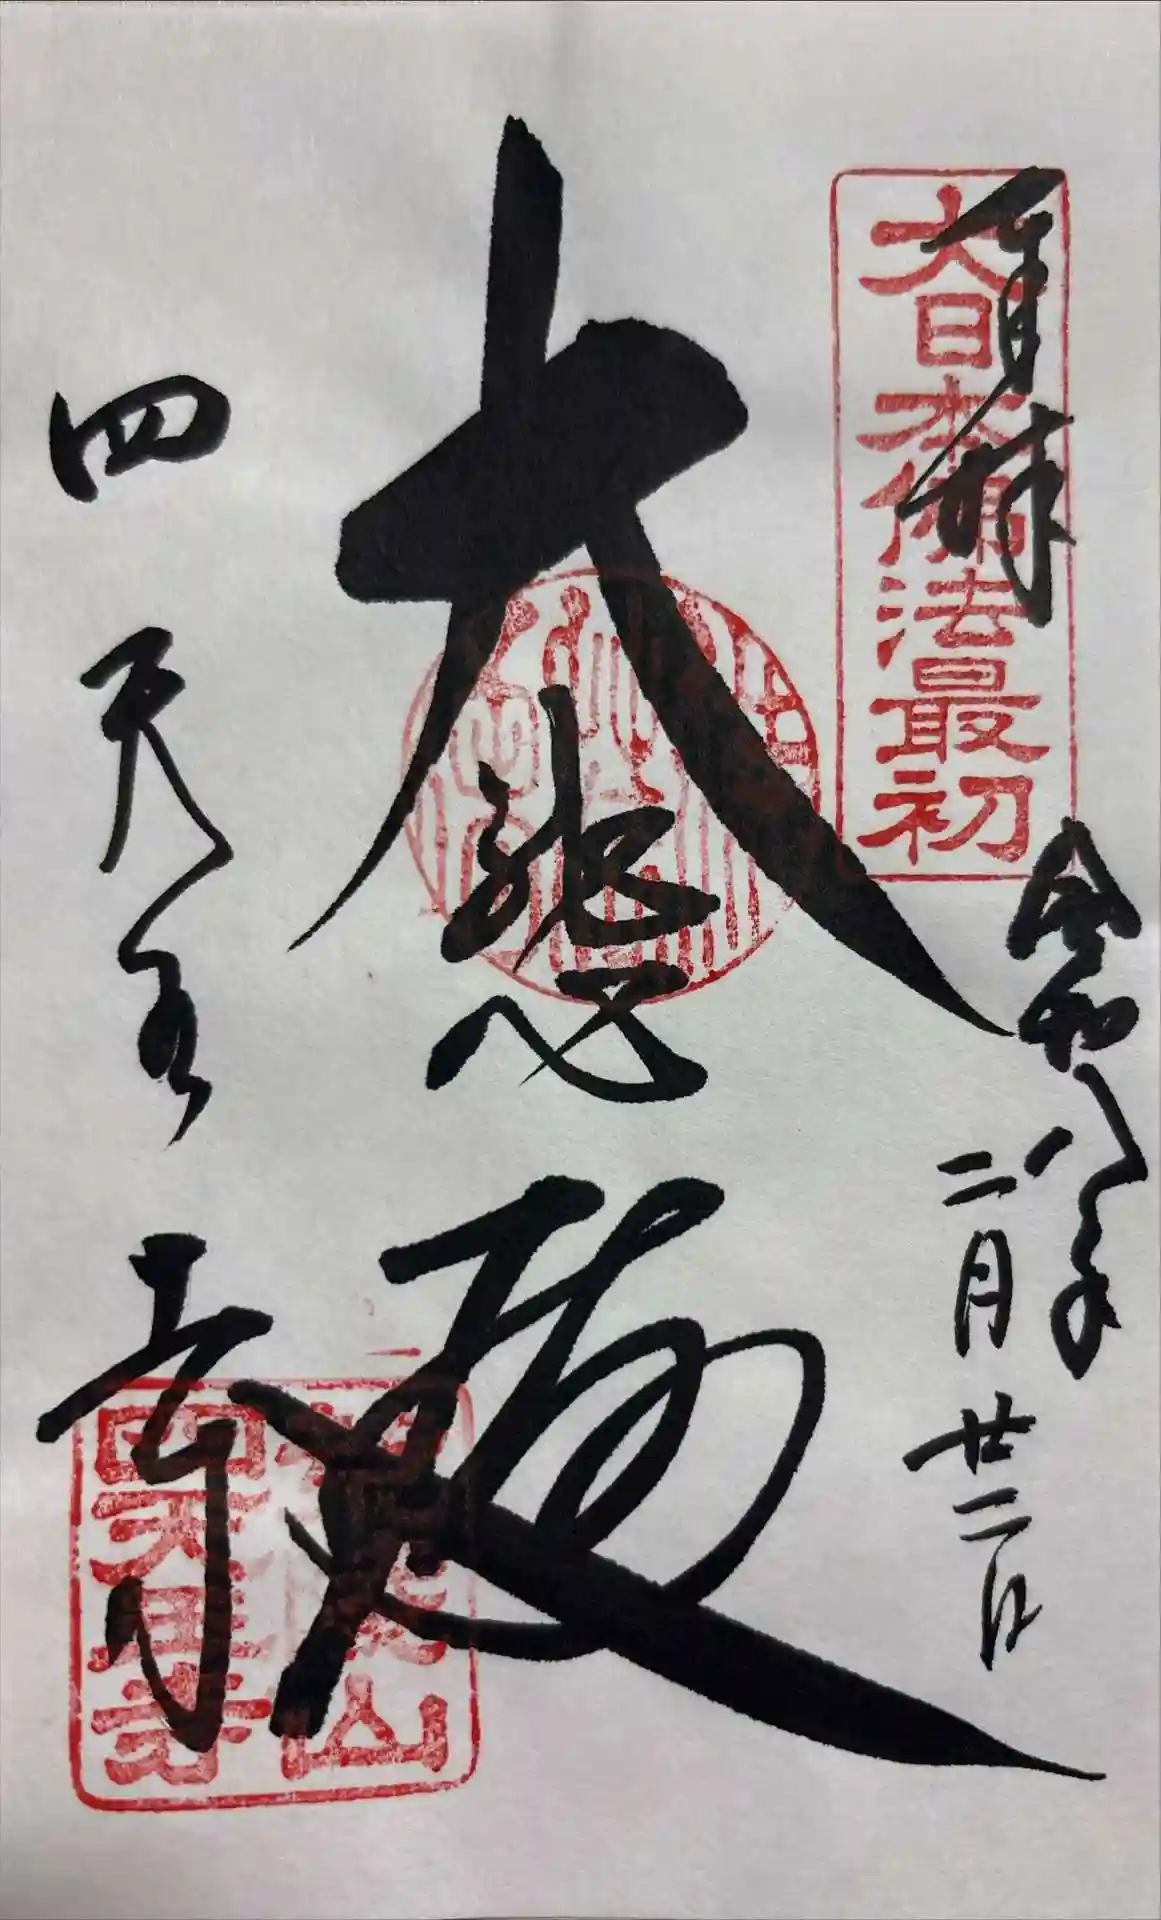 奉拝
大日本佛法最初
令和八年
二月廿二日
大悲殿
四天王寺
荒陵山
四天王寺